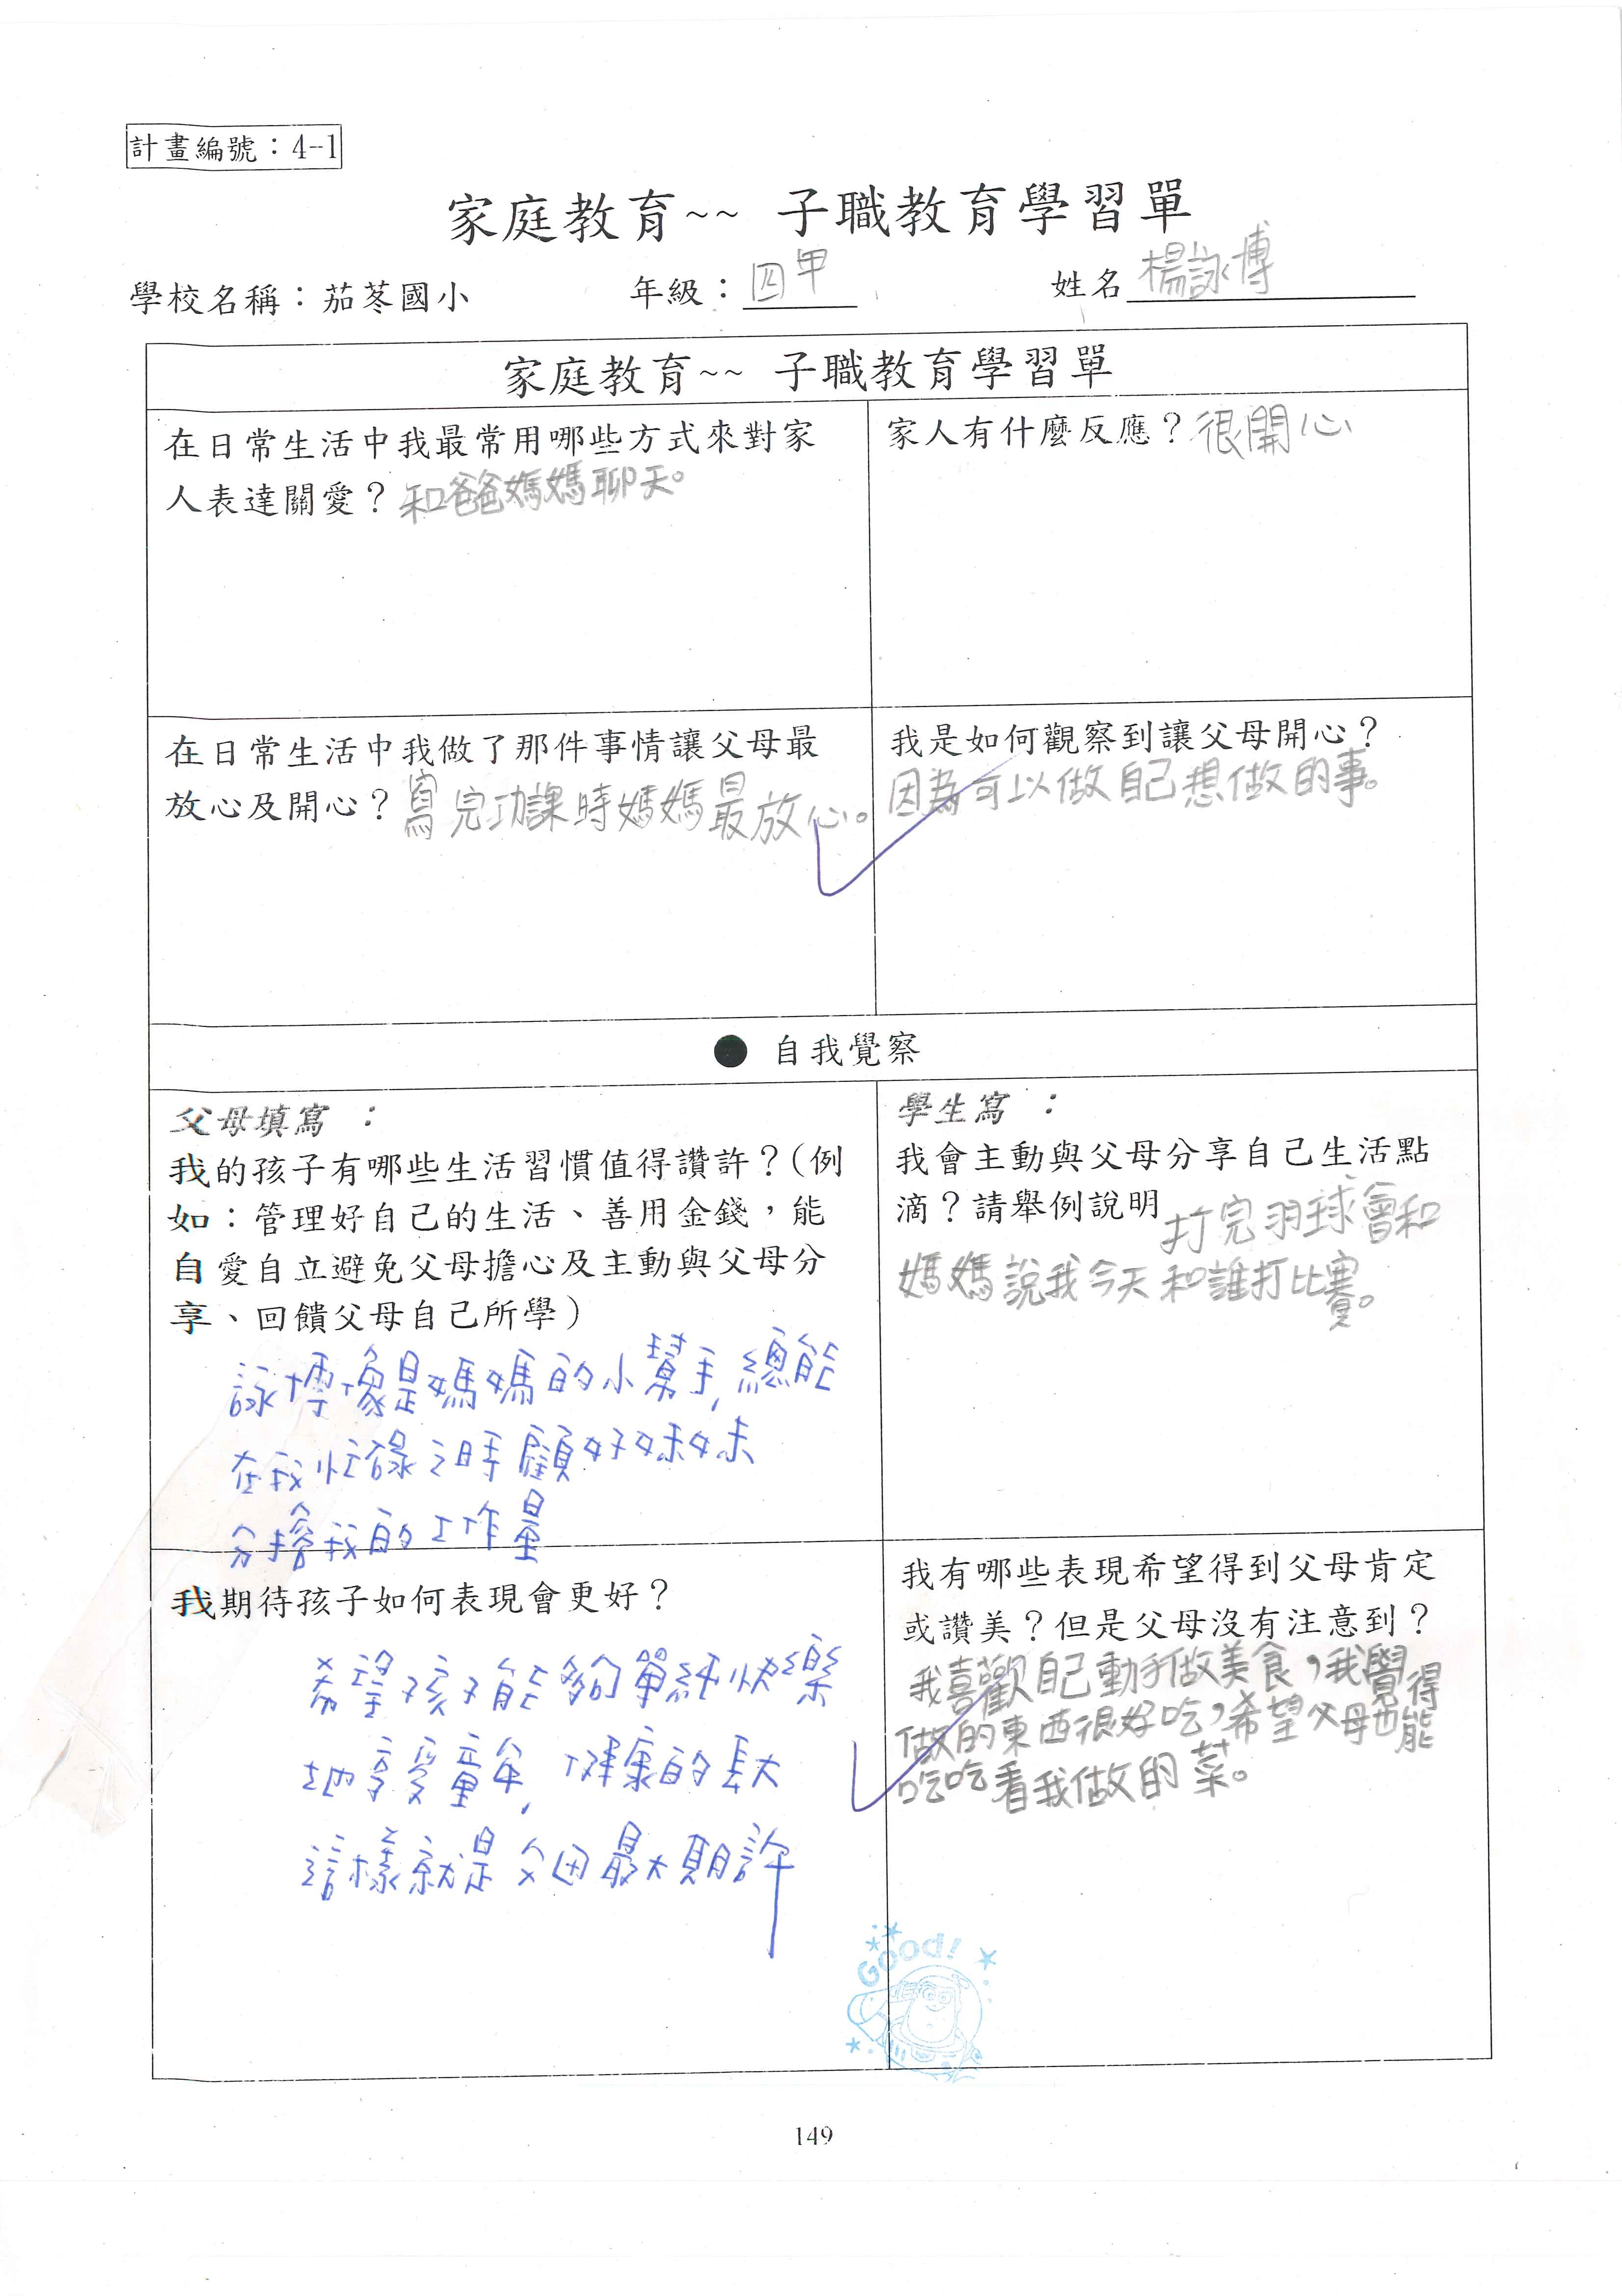 計畫編號：4-1
家庭教育~~ 子職教育學習單
學校名稱：茄苳國小 年級：四甲 姓名 楊詠博
家庭教育~~ 子職教育學習單
在日常生活中我最常用哪些方式來對家
人表達關愛？和爸爸媽媽聊天。
家人有什麼反應？很開心
在日常生活中我做了那件事情讓父母最
放心及開心？寫完功課時媽媽最放心。
我是如何觀察到讓父母開心？
因為可以做自己想做的事。
● 自我覺察
父母填寫 ：
我的孩子有哪些生活習慣值得讚許？(例
如：管理好自己的生活、善用金錢，能
自愛自立避免父母擔心及主動與父母分
享、回饋父母自己所學)
詠博像是媽媽的小幫手,總能
在我忙碌之時顧好妹妹
分擔我的工作量
學生寫 ：
我會主動與父母分享自己生活點
滴？請舉例說明 打完羽球會和
媽媽說我今天和誰打比賽。
我期待孩子如何表現會更好？
希望孩子能夠單純快樂
地享受童年,健康的長大
這樣就是父母最大期許
我有哪些表現希望得到父母肯定
或讚美？但是父母沒有注意到？
我喜歡自己動手做美食，我覺得
做的東西很好吃，希望父母也能
吃吃看我做的菜。
Good!
149